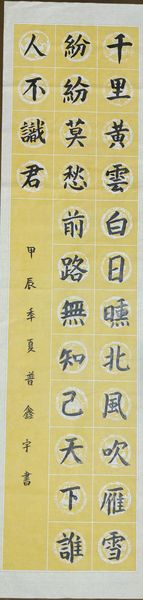 千里黃雲白日曛北風吹雁雪
紛紛莫愁前路無知己天下誰
人不識君
甲辰季夏普鑫宇書